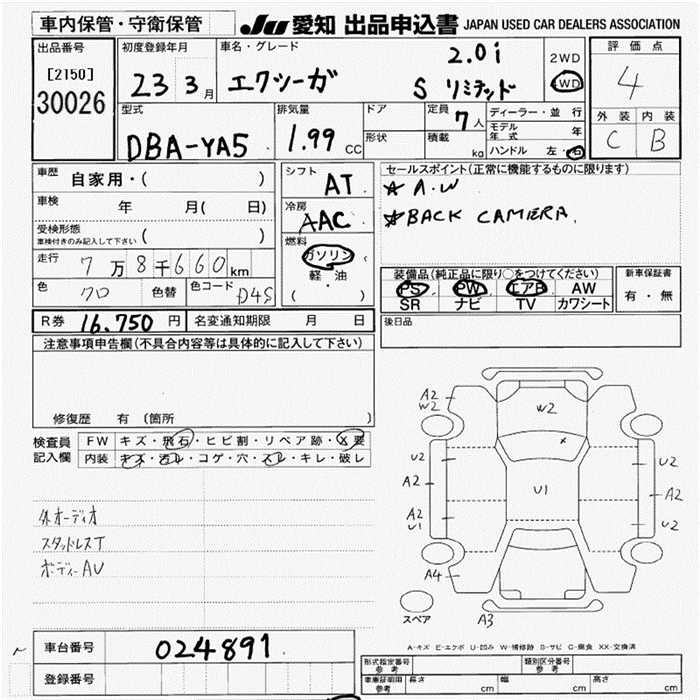 車内保管・守衛保管 JU 愛知 出品申込書 JAPAN USED CAR DEALERS ASSOCIATION
出品番号
[2150]
30026
初度登録年月
23 3月
車名・グレード
2.0i
エクシーガ S リミテッド
2WD
4WD
評価点
4
外装 内装
C B
型式
DBA-YA5
排気量
1.99 CC
ドア
形状
定員 7人
積載 kg
ディーラー・並行
モデル年式 年
ハンドル 左・右
車歴 自家用・( )
車検 年 月( 日)
受検形態
車検付きのみ記入して下さい ( )
走行 7万8千660km
色 クロ 色替 色コード D4S
シフト AT
冷房 AAC
燃料
ガソリン
軽・油
( )
セールスポイント(正常に機能するものに限ります)
★ A.W
★BACK CAMERA.
装備品(純正品に限り○をつけてください)
PS PW エアB AW
SR ナビ TV カワシート
新車保証書
有・無
R券 16,750円 名変通知期限 月 日
後日品
注意事項申告欄(不具合内容等は具体的に記入して下さい)
修復歴 有 〔箇所 〕
検査員
記入欄
FW キズ・飛石・ヒビ割・リペア跡・X要
内装 キズ・汚レ・コゲ・穴・スレ・キレ・破レ
外オーディオ
スタッドレスT
ボディーAU
A2
W2
W2
U2
A2
U1
A2
U1
U2
A2
U2
A4
A3
スペア
A-キズ E-エクボ U-凹み W-補修跡 S-サビ C-腐食 XX-交換済
車台番号 024891
登録番号
形式指定番号
参考
類別区分番号
参考
車庫証明用
参考
長さ cm 幅 cm 高さ cm